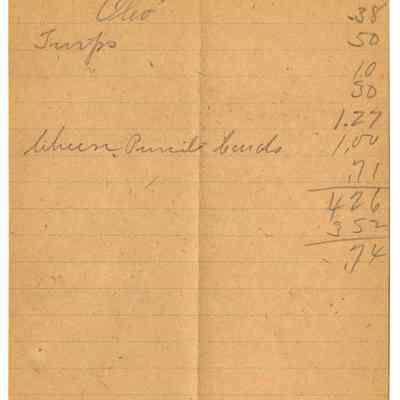 Oleo .38
Turps 50
10
30
1.27
Cheese, Pencil Cards 1,00
.71
426
352
.74